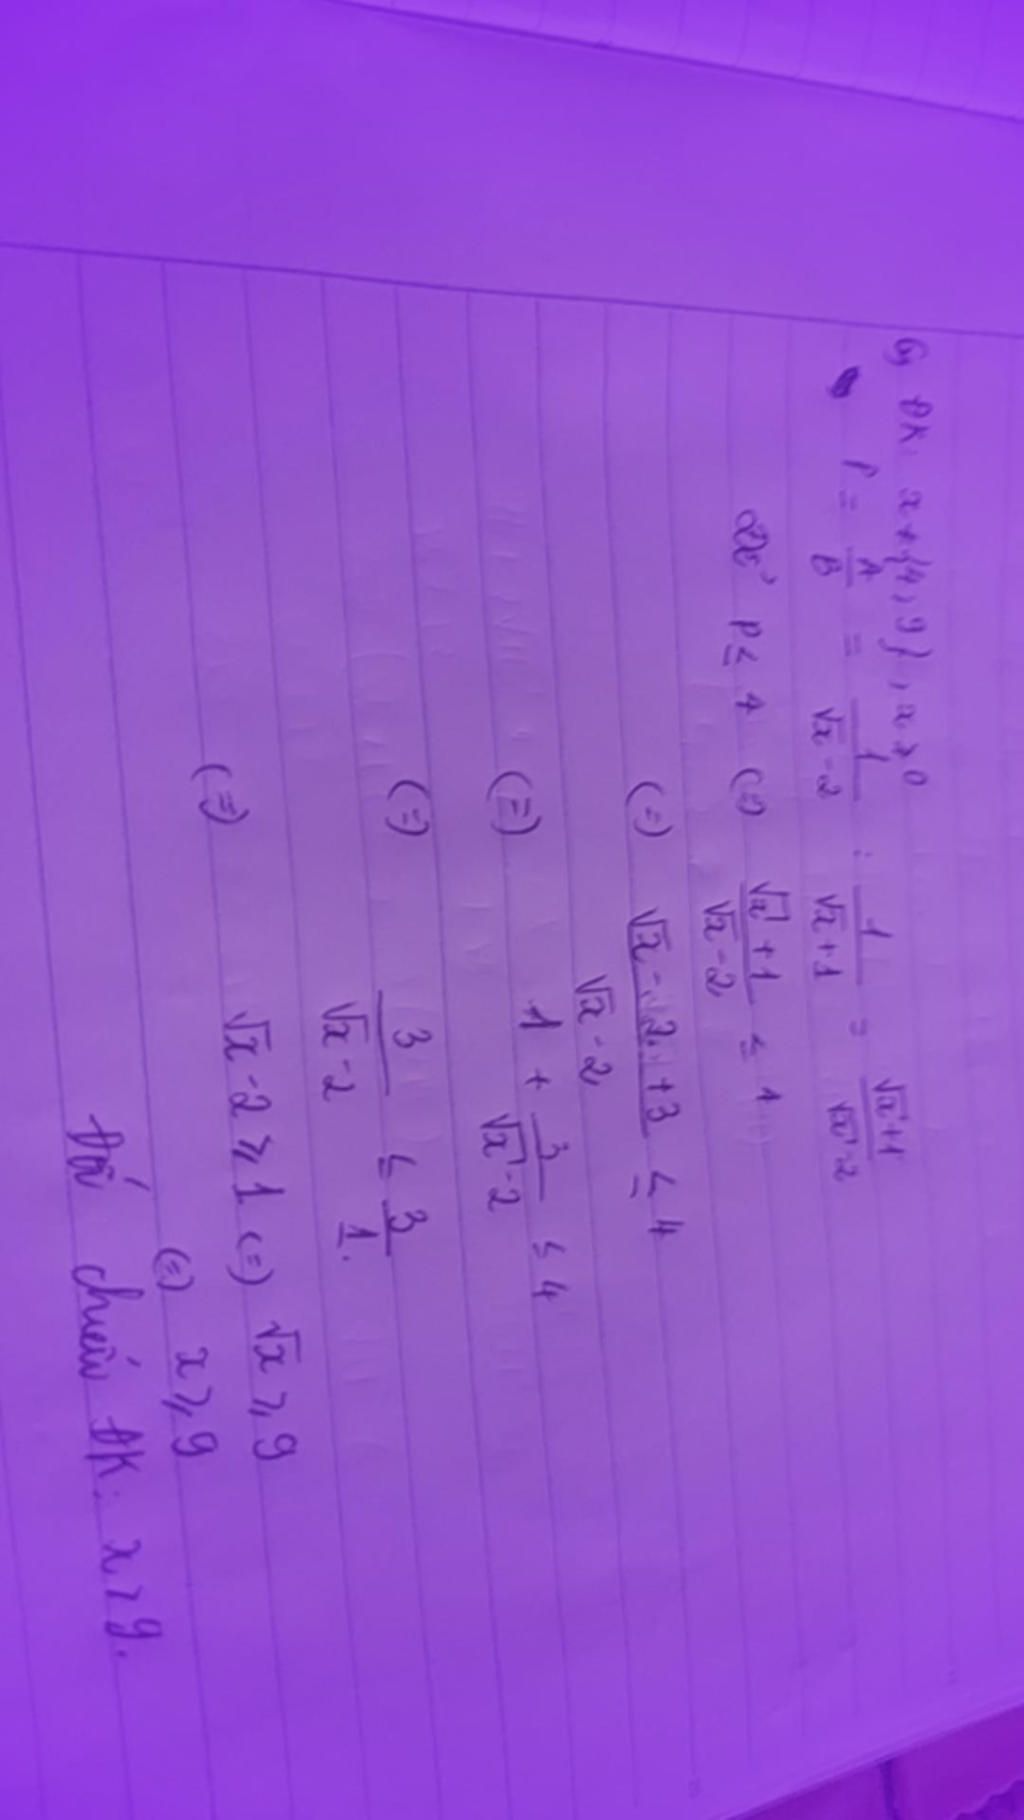 c, ĐK: x ≠ {4, 9}, x ≥ 0
P = A/B = 1/(√x - 2) : 1/(√x + 1) = (√x + 1)/(√x - 2)
P ≤ 4 (=) (√x + 1)/(√x - 2) ≤ 4
(=) (√x - 2 + 3)/(√x - 2) ≤ 4
(=) 1 + 3/(√x - 2) ≤ 4
(=) 3/(√x - 2) ≤ 3/1.
(=) √x - 2 ≥ 1 (=) √x ≥ 9
(=) x ≥ 9
Đối chiếu ĐK: x > 9.